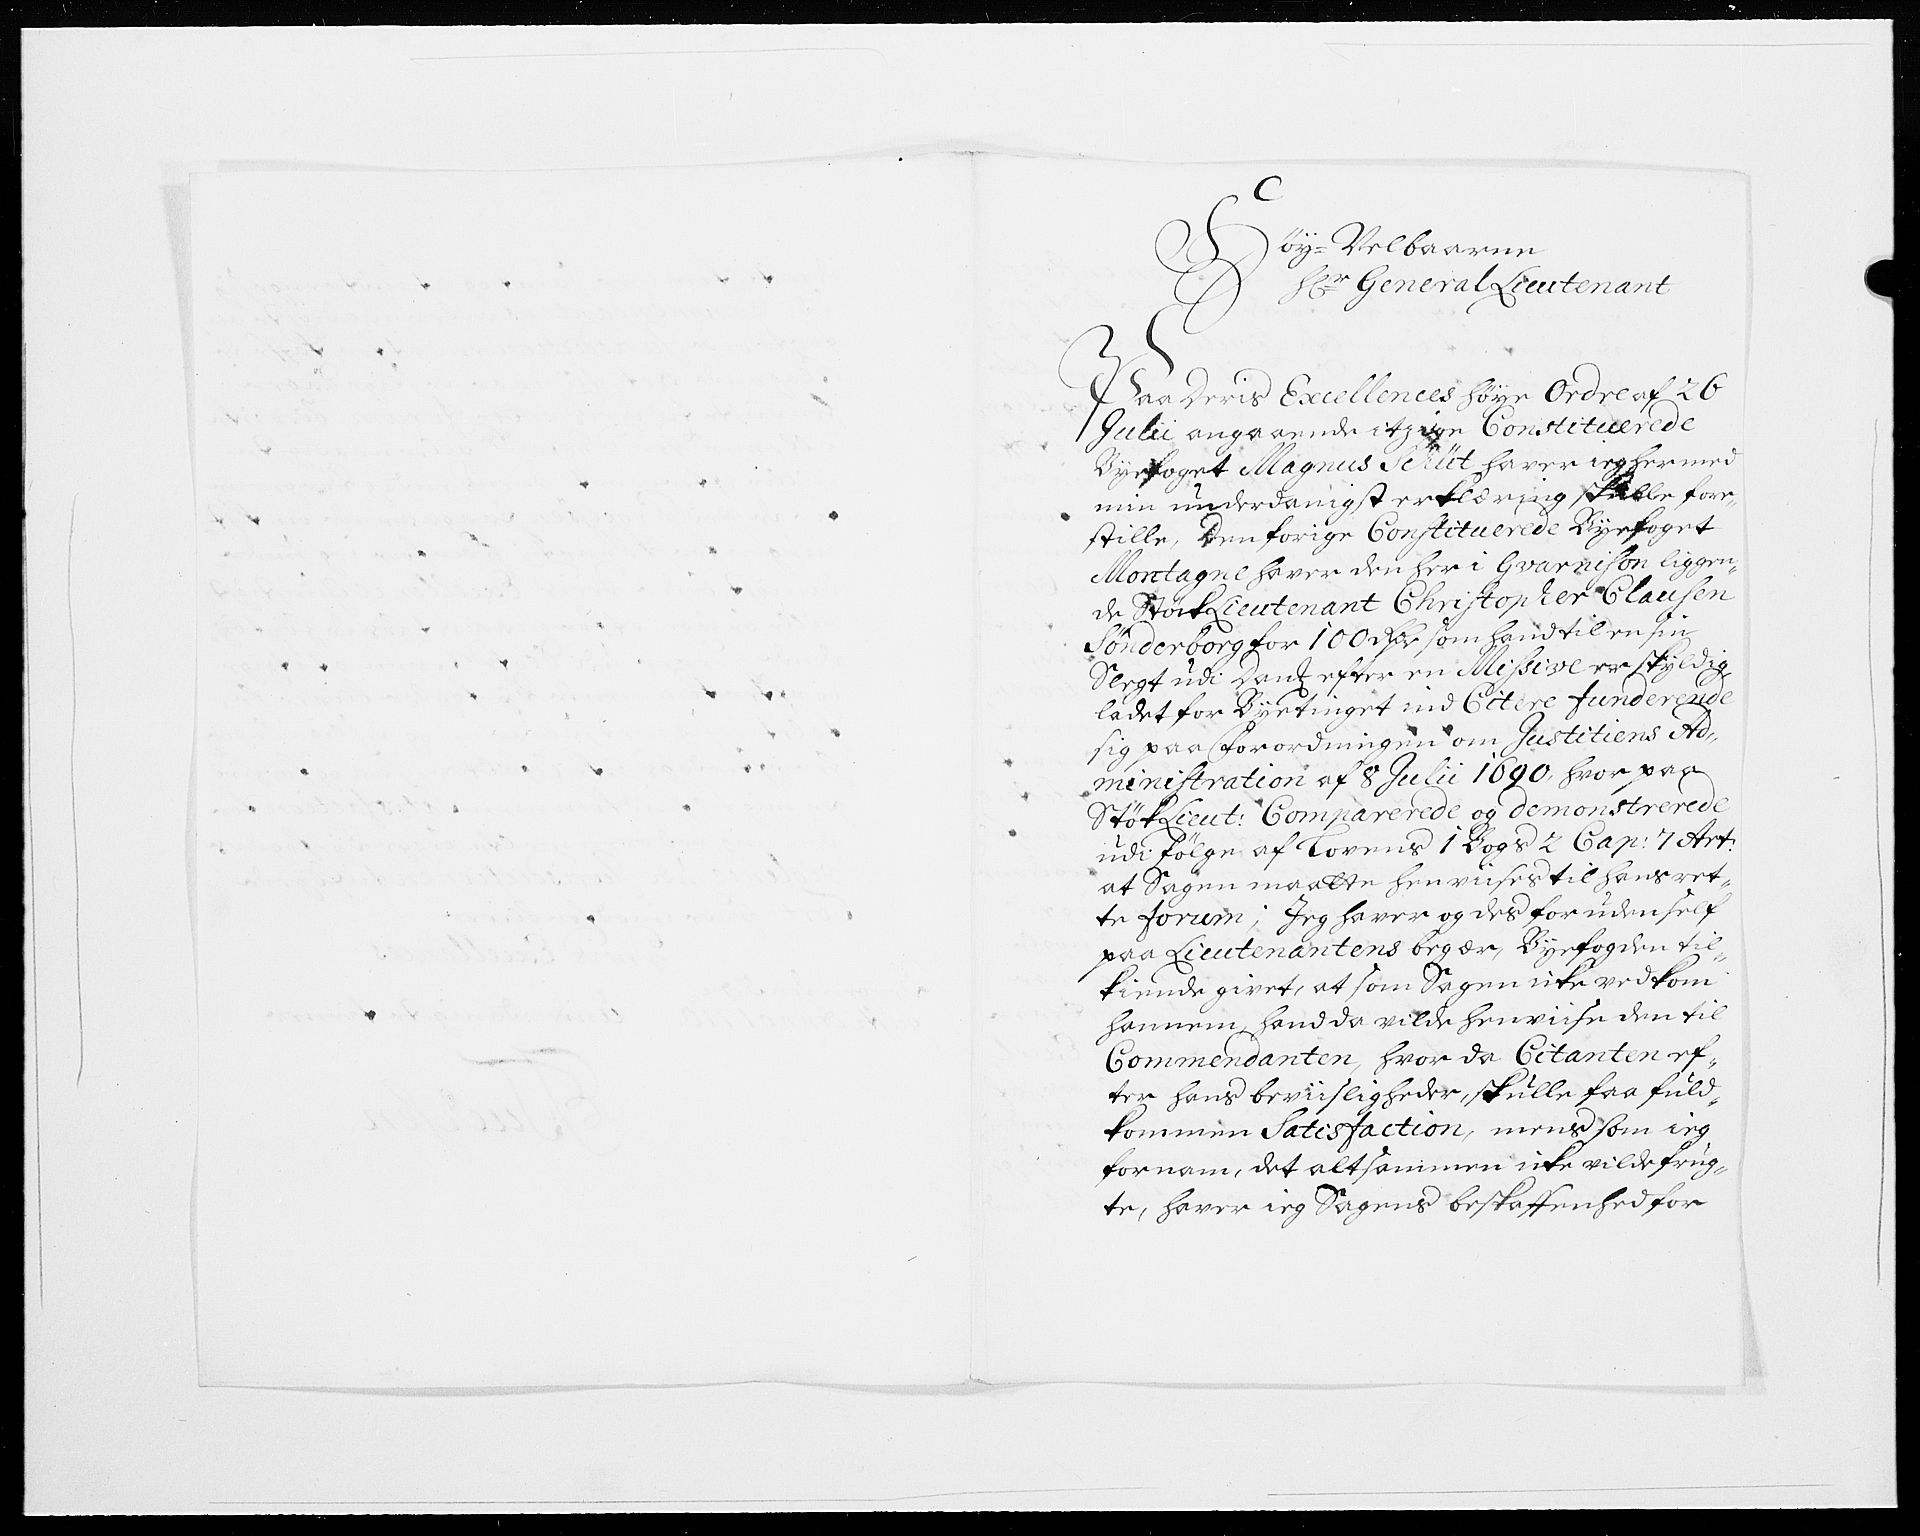 C
Høy-Velbaarne
Hr General Lieutenant
Paa Deris Excellences høye Ordre af 26
Julii angaaende itzige Constituerede
Byefoget Magnus Schüt haver ieg hermed
min underdanigst erklæring skulle fore„
stille, Den forige Constituerede Byefoget
Montagne haver den her i Gvarnison liggen„
de Støck Lieutenant Christopher Clausen
Sønderborg for 100 Rdr som hand til en sin
Slegt udi Danz efter en Missive er skyldig,
ladet for Byetinget ind Citere funderende
sig paa Forordningen om Justitiens Ad„
ministration af 8 Julii 1690, hvor paa
Støk Lieut: Comparerede og demonstrerede
udi følge af Lovens 1 Bogs 2 Cap: 7 Art:
at Sagen maatte henviises til hans ret„
te forum; Jeg haver og des foruden self
paa Lieutenantens begær, Byefogden til„
kiende givet, at som Sagen icke vedkom
hannem, hand da vilde henviise den til
Commendanten, hvor da Citanten ef„
ter hans beviisligheder, skulle faa fuld„
kommen Satisfaction, mens som ieg
fornam, det altsammen icke vilde frug„
te, haver ieg Sagens beskaffenhed for